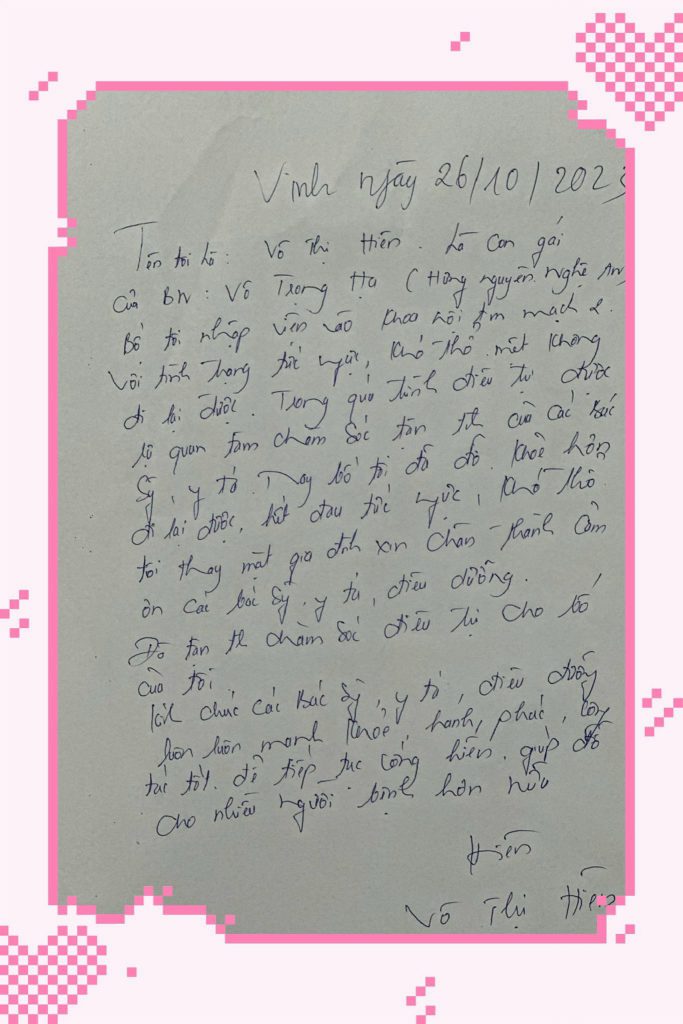 Vinh ngày 26/10/2023
Tên tôi là: Võ Thị Hiền. Là con gái
của BN: Võ Trọng Hạ (Hưng nguyên. Nghệ An)
Bố tôi nhập viện vào khoa nội tim mạch 2.
Với tình trạng tức ngực, khó thở. mệt không
đi lại được. Trong quá trình điều trị được
sự quan tâm chăm sóc tận tình của các Bác
Sỹ, y tá. Nay bố tôi đã đỡ. khoẻ hơn
đi lại được, hết đau tức ngực, khó thở.
tôi thay mặt gia đình xin chân thành cảm
ơn các bác sỹ. y tá, điều dưỡng.
Đã tận tình chăm sóc điều trị cho bố
của tôi
kính chúc các Bác Sỹ, y tá, điều dưỡng
luôn luôn mạnh khoẻ, hạnh phúc, công
tác tốt. để tiếp tục cống hiến. giúp đỡ
cho nhiều người bệnh hơn nữa
Hiền
Võ Thị Hiền